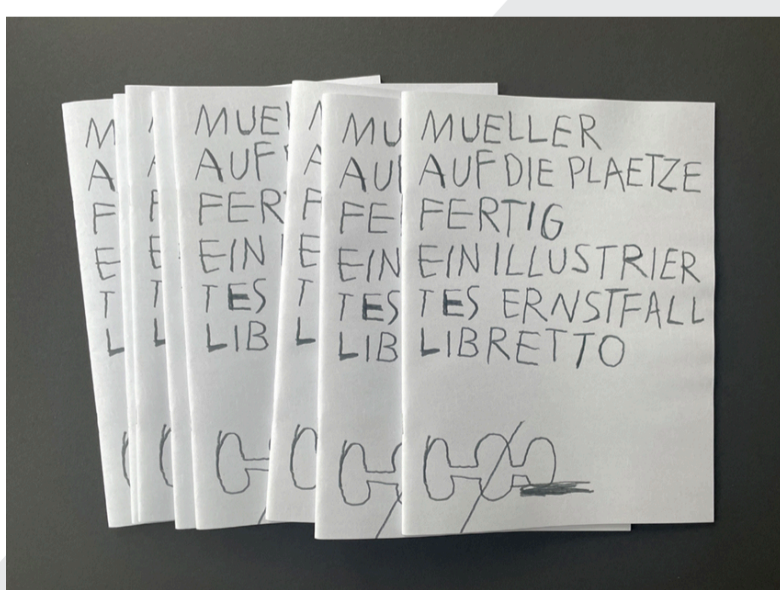 MUELLER
AUF DIE PLAETZE
FERTIG
EIN ILLUSTRIER
TES ERNSTFALL
LIBRETTO